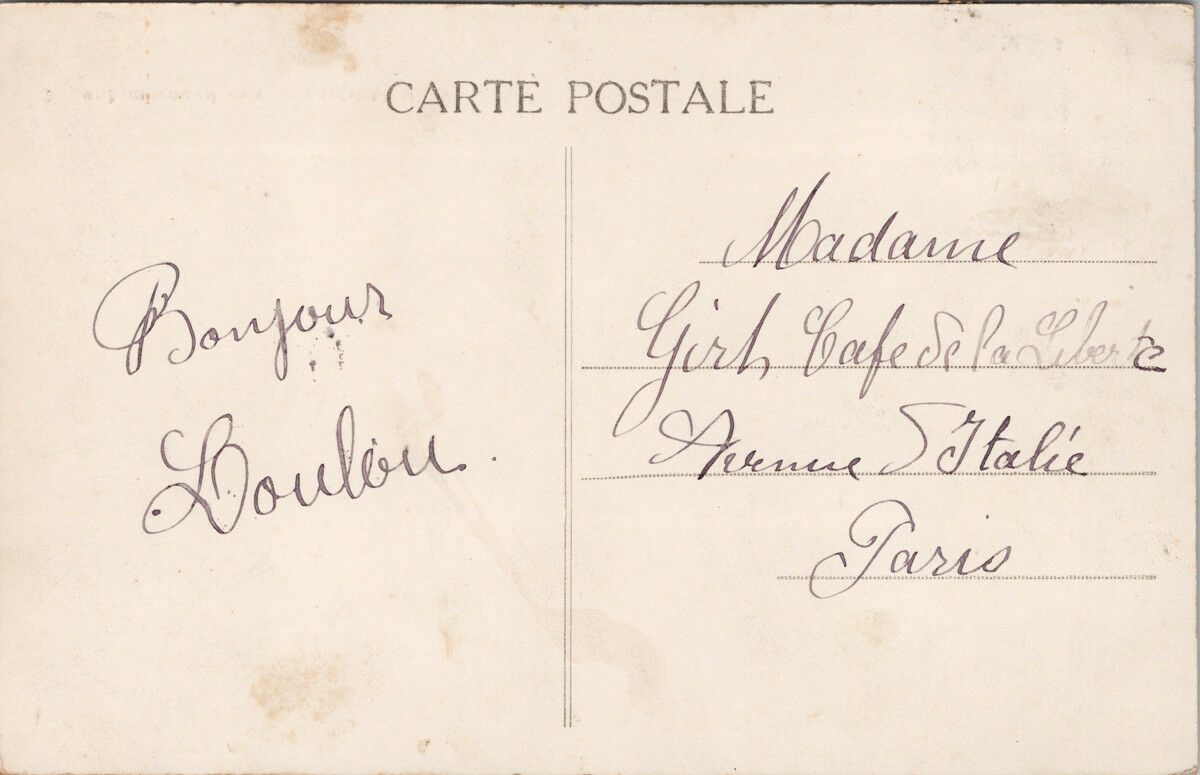 CARTE POSTALE
Bonjour
Loulou.
Madame
Girh Cafe de la Liberte
Avenue d'Italie
Paris